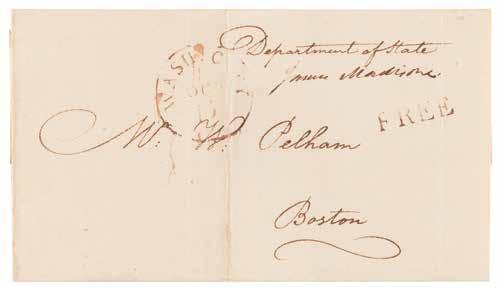 Department of State
James Madison.
WASH. C
FREE
Mr. W. Pelham
Boston